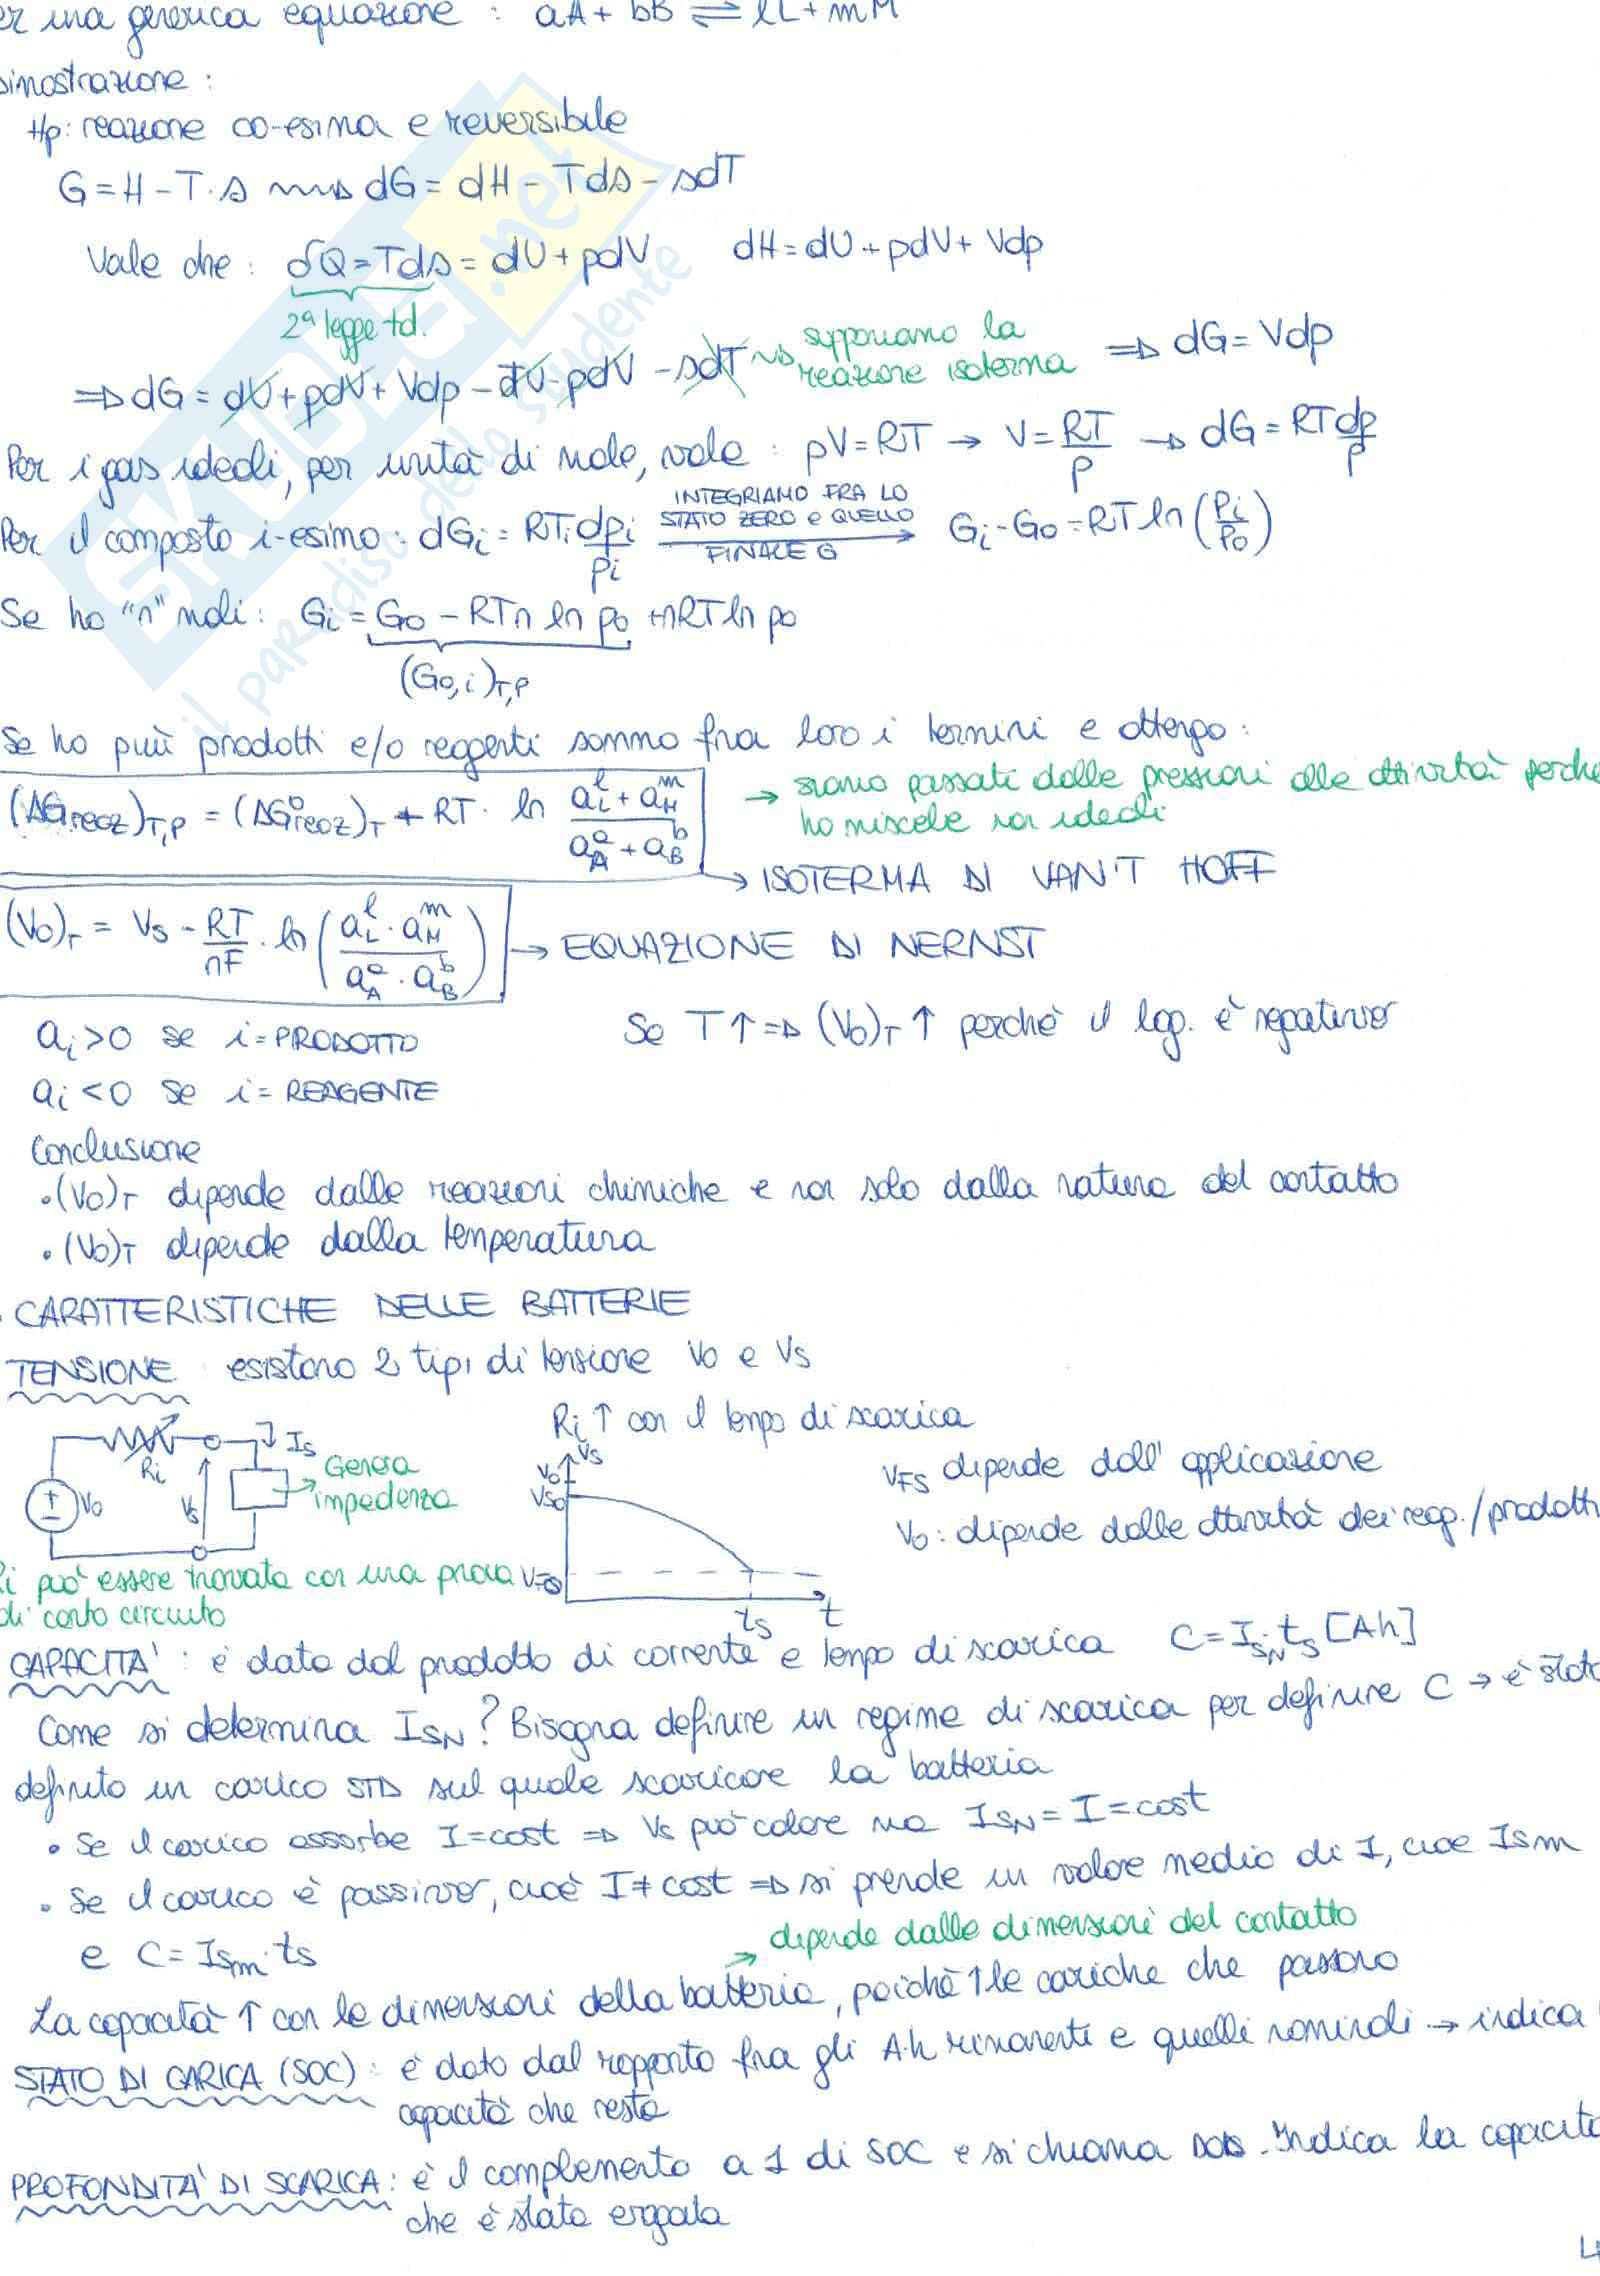 er una generica equazione : aA + bB ⇌ lL + mM
Dimostrazione :
Hp: reazione ∞-esima e reversibile
G = H - T·s ⇝ dG = dH - Tds - sdT
Vale che : δQ = Tds = dU + pdV dH = dU + pdV + Vdp
2ª legge td.
⇒ dG = dU + pdV + Vdp - dU - pdV - sdT ⇝ supponiamo la reazione isoterma ⇒ dG = Vdp
Per i gas ideali, per unità di mole, vale : pV = RT → V = RT/p → dG = RT dp/p
Per il composto i-esimo : dGi = RTi dpi/pi INTEGRIAMO FRA LO STATO ZERO e QUELLO FINALE G → Gi - Go = RT ln (Pi/Po)
Se ho "n" moli : Gi = Go - RTn ln po + nRT ln po
(Go,i)T,P
Se ho più prodotti e/o reagenti sommo fra loro i termini e ottengo :
(ΔGreaz)T,P = (ΔG°reaz)T + RT · ln (aL^l + aM^m)/(aA^a + aB^b) → siamo passati dalle pressioni alle attività perche
ho miscele non ideali
→ ISOTERMA DI VAN'T HOFF
(Vo)T = Vs - RT/nF · ln ((aL^l · aM^m)/(aA^a · aB^b)) → EQUAZIONE DI NERNST
ai > 0 se i = PRODOTTO Se T ↑ ⇒ (Vo)T ↑ perchè il log. è negativo
ai < 0 se i = REAGENTE
Conclusione
• (Vo)T dipende dalle reazioni chimiche e non solo dalla natura del contatto
• (Vo)T dipende dalla temperatura
• CARATTERISTICHE DELLE BATTERIE
TENSIONE esistono 2 tipi di tensione Vo e Vs
Ri ↑ con il tempo di scarica
Ri Is Vo Vs Genera impedenza
Vs Vo Vso ts t
VFS dipende dall' applicazione
Vo : dipende dalle attività dei reag./prodotti
Ri può essere trovata con una prova
di corto circuito
CAPACITA' : è data dal prodotto di corrente e tempo di scarica C = ISN · ts [Ah]
Come si determina ISN ? Bisogna definire un regime di scarica per definire C → è stato
definito un carico STD sul quale scaricare la batteria
• Se il carico assorbe I = cost ⇒ Vs può calare ma ISN = I = cost
• Se il carico è passivo, cioè I ≠ cost ⇒ si prende un valore medio di I, cioe Ism
e C = Ism · ts
→ dipende dalle dimensioni del contatto
La capacità ↑ con le dimensioni della batteria, poichè ↑ le cariche che passano
STATO DI CARICA (SOC) : è dato dal rapporto fra gli A·h rimanente e quelli nominali → indica
capacità che resta
PROFONDITA' DI SCARICA : è il complemento a 1 di SOC e si chiama DOD. Indica la capacita
che è stata erogata
4
SKUOLA.net
il paradiso dello studente